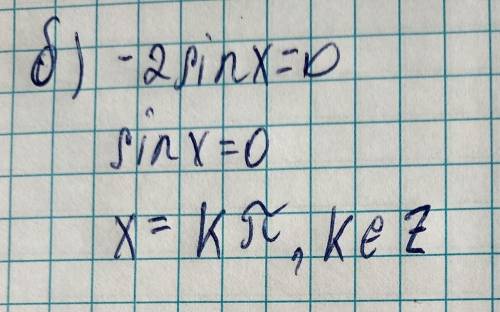 б) -2sinx=0
sinx=0
x= кπ, к∈Z